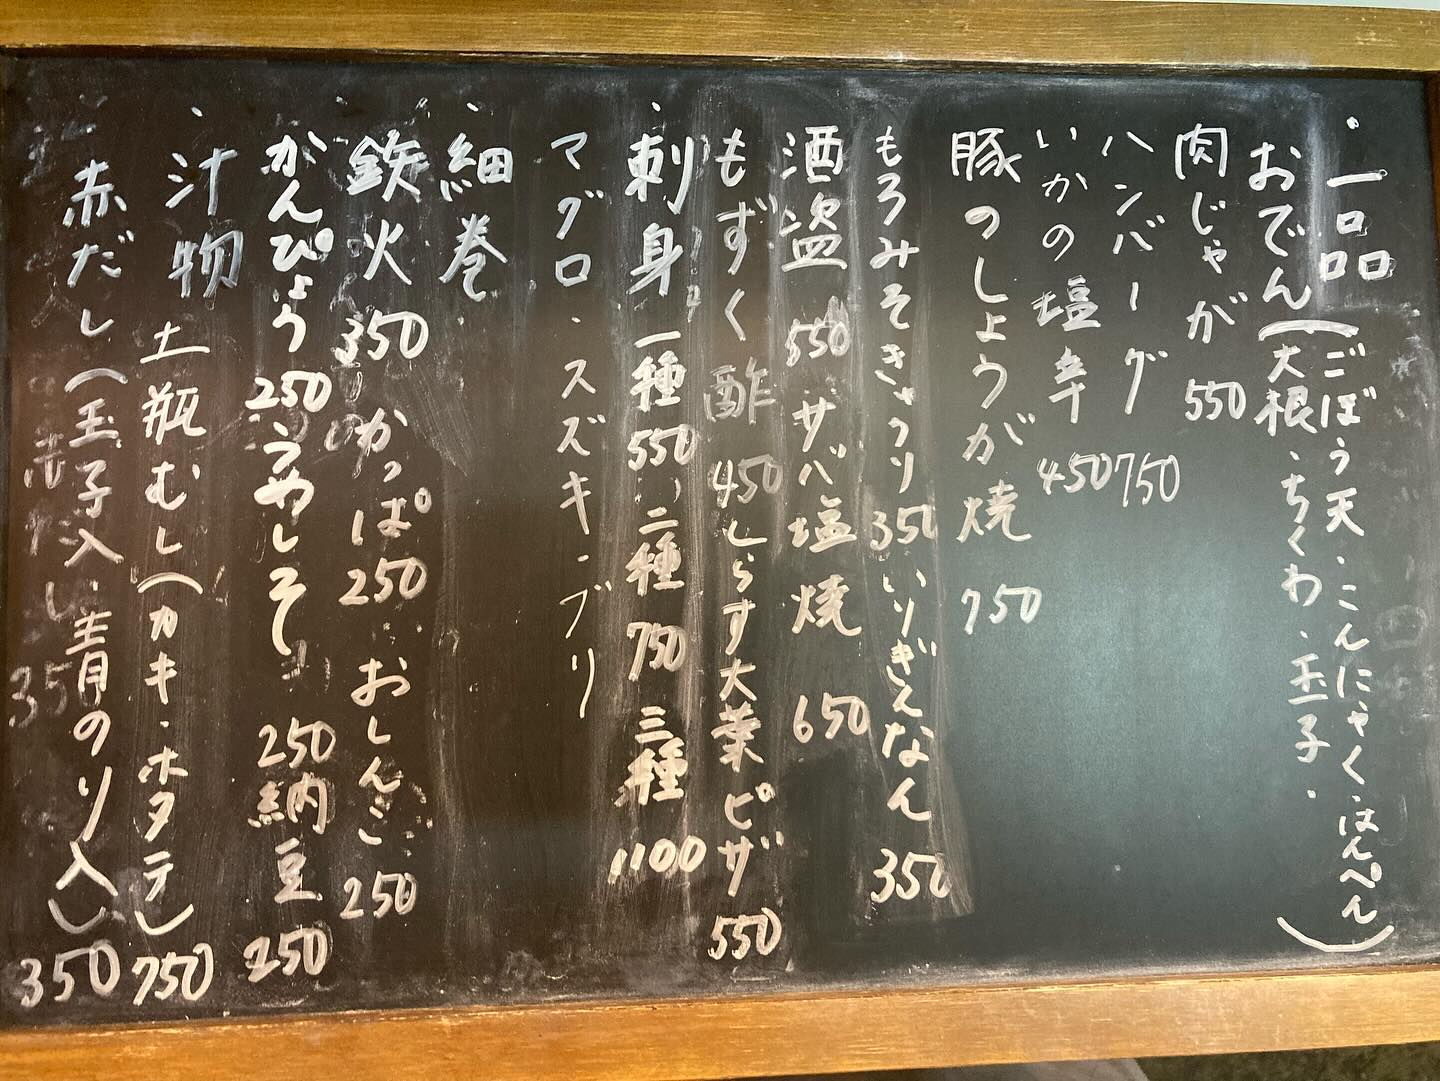 ・一品
おでん(大根・ちくわ・玉子・ごぼう天・こんにゃく・はんぺん)
肉じゃが 550
ハンバーグ 750
いかの塩辛 450
豚のしょうが焼 750
もろみそきゅうり 350 いりぎんなん 350
酒盗 550 サバ塩焼 650
もずく酢 450 しらす大葉ピザ 550
・刺身 一種 550 二種 750 三種 1100
マグロ・スズキ・ブリ
・細巻
鉄火 350 かっぱ 250 おしんこ 250
かんぴょう 250 うめしそ 250 納豆 250
・汁物 土瓶むし(カキ・ホタテ) 750
赤だし(玉子入・青のり入) 350